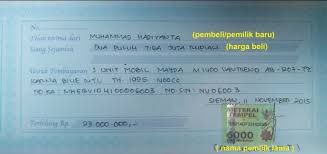 No.
Telah terima dari MUHAMMAD HADIYANTA (pembeli/pemilik baru)
Uang Sejumlah DUA PULUH TIGA JUTA RUPIAH (harga beli)
Untuk Pembayaran 1 UNIT MOBIL MAZDA M1400 VANTREND AB-207-
WARNA BLUE MTL TH. 1995 NOOCC
NO KA: NO SIN: NU06003
SLEMAN, 11 NOVEMBER 2015
Terbilang Rp. 23.000.000,-
METERAI
TEMPEL
6000
( nama pemilik lama )